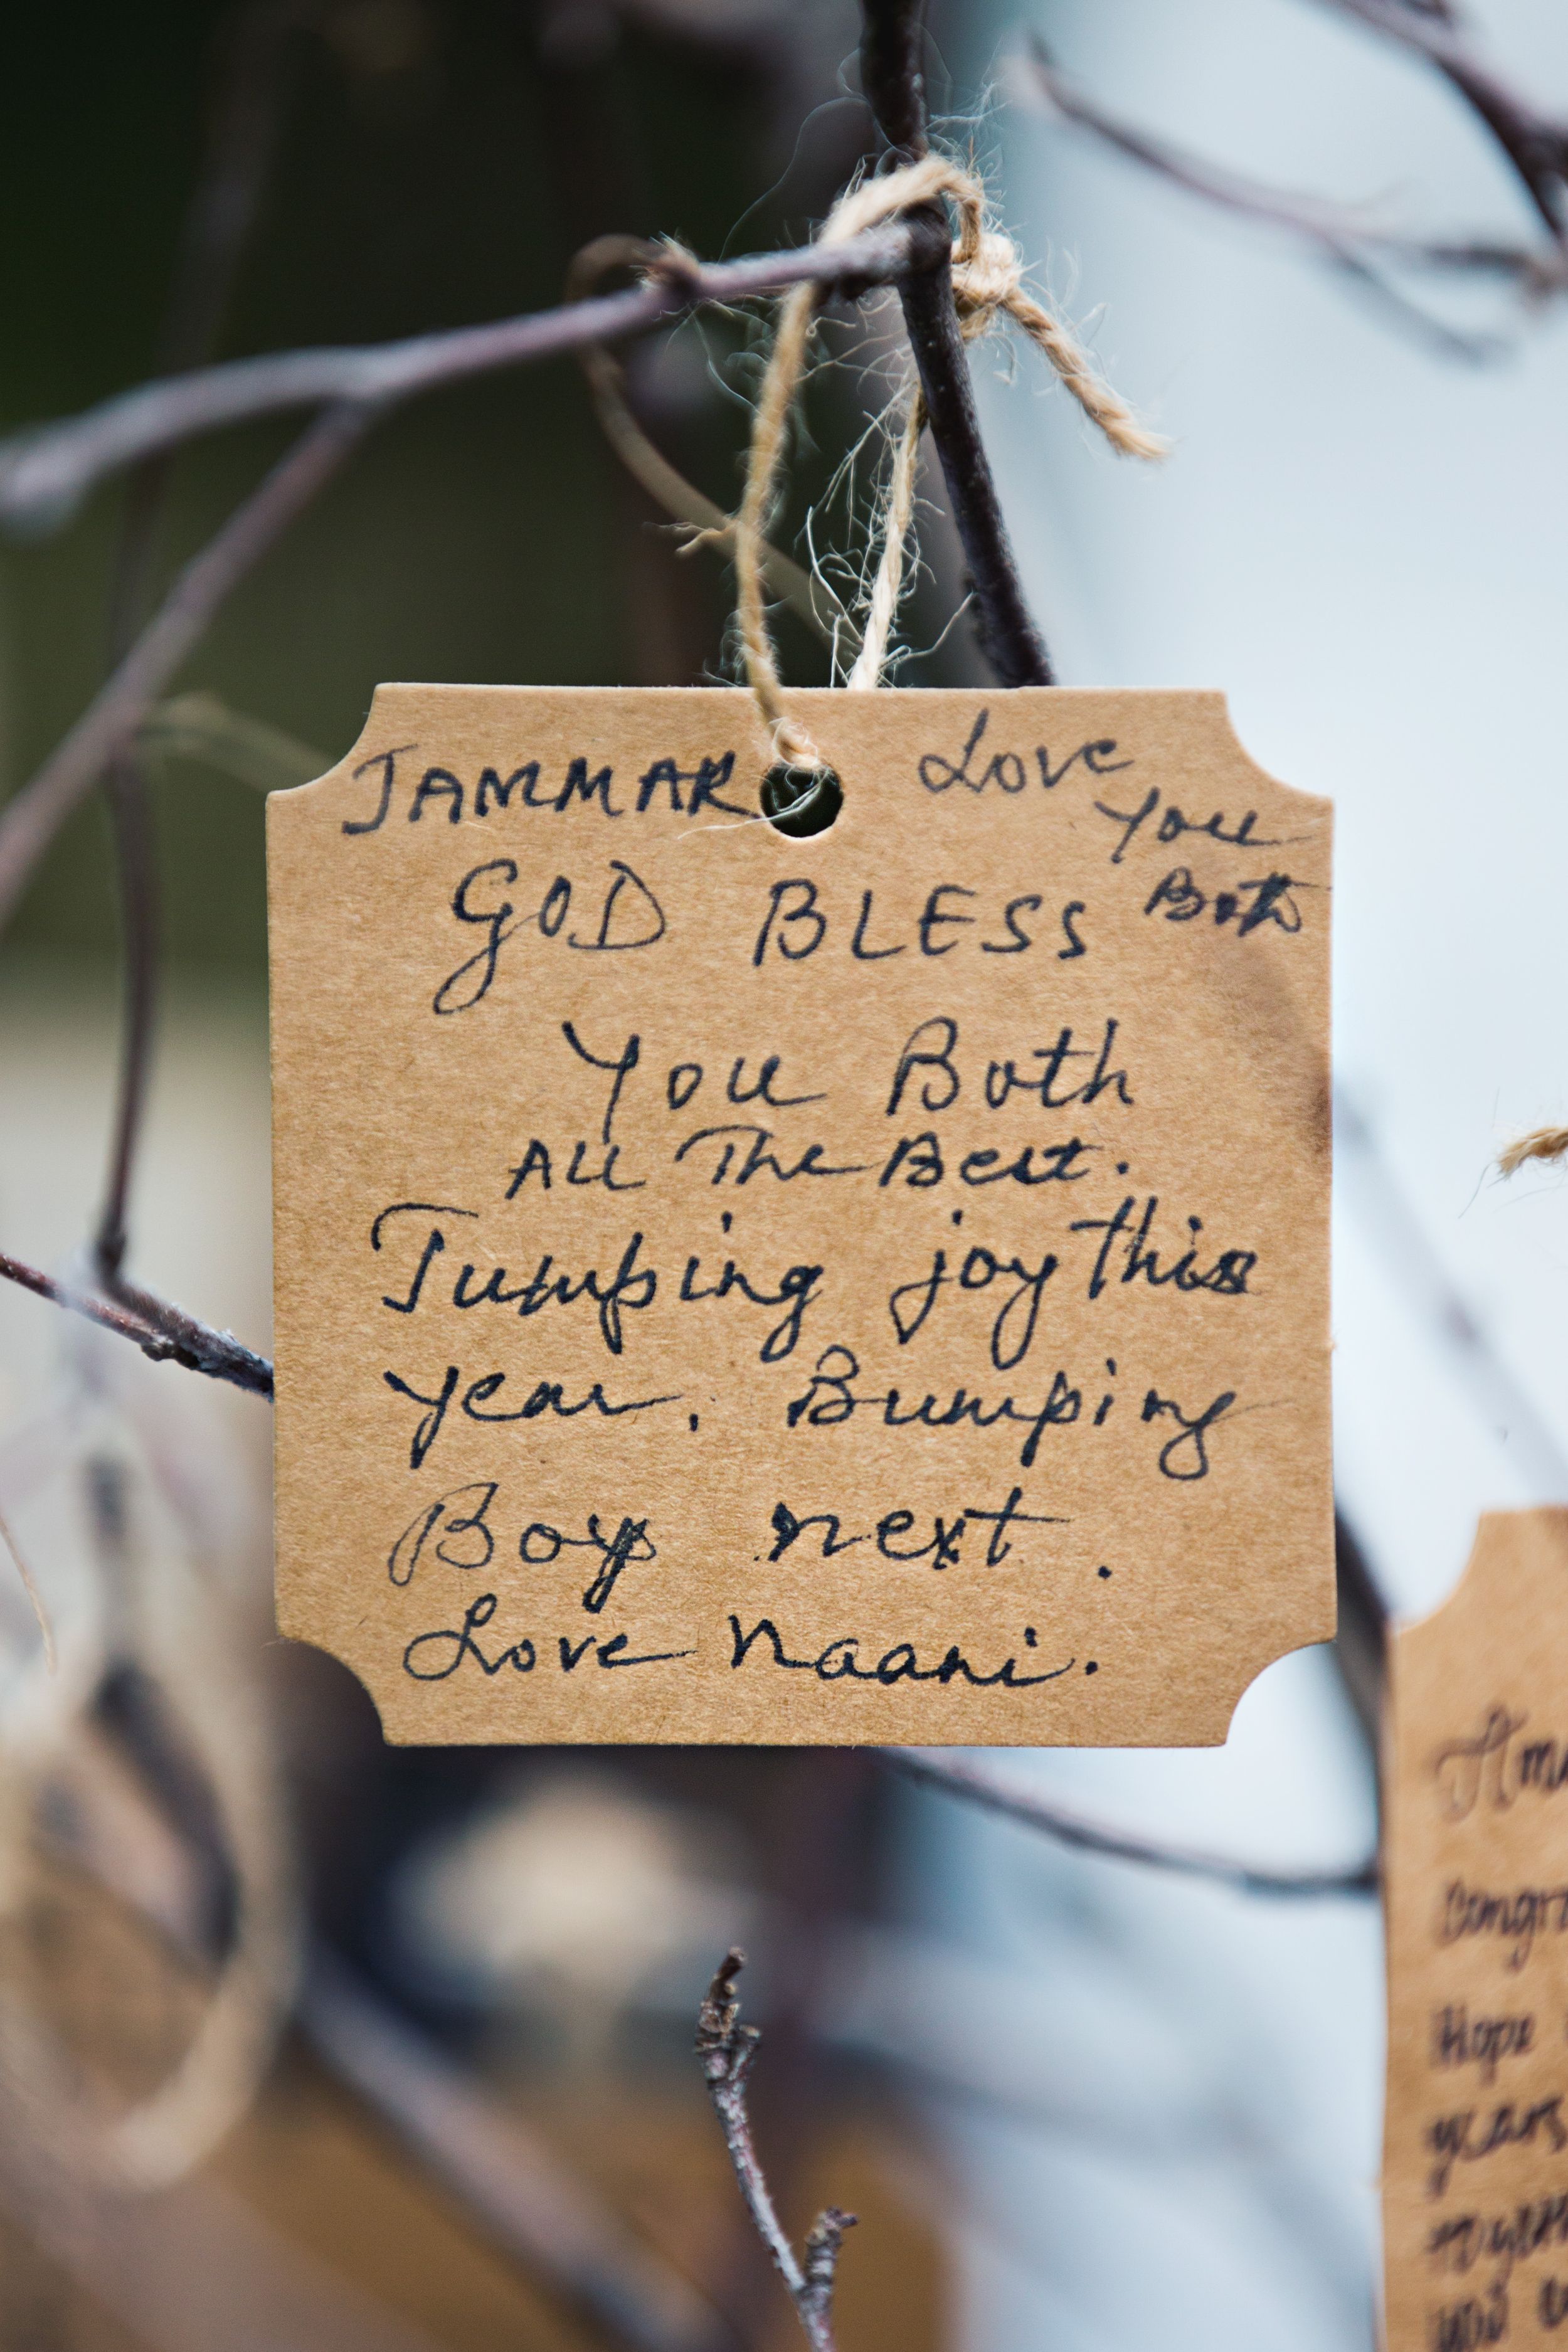 JAMMAR
Love
You
Both
GOD BLESS
You Both
All The Best.
Jumping joy this
year. Bumping
Boy next.
Love Naani.
Congr
Hope
years